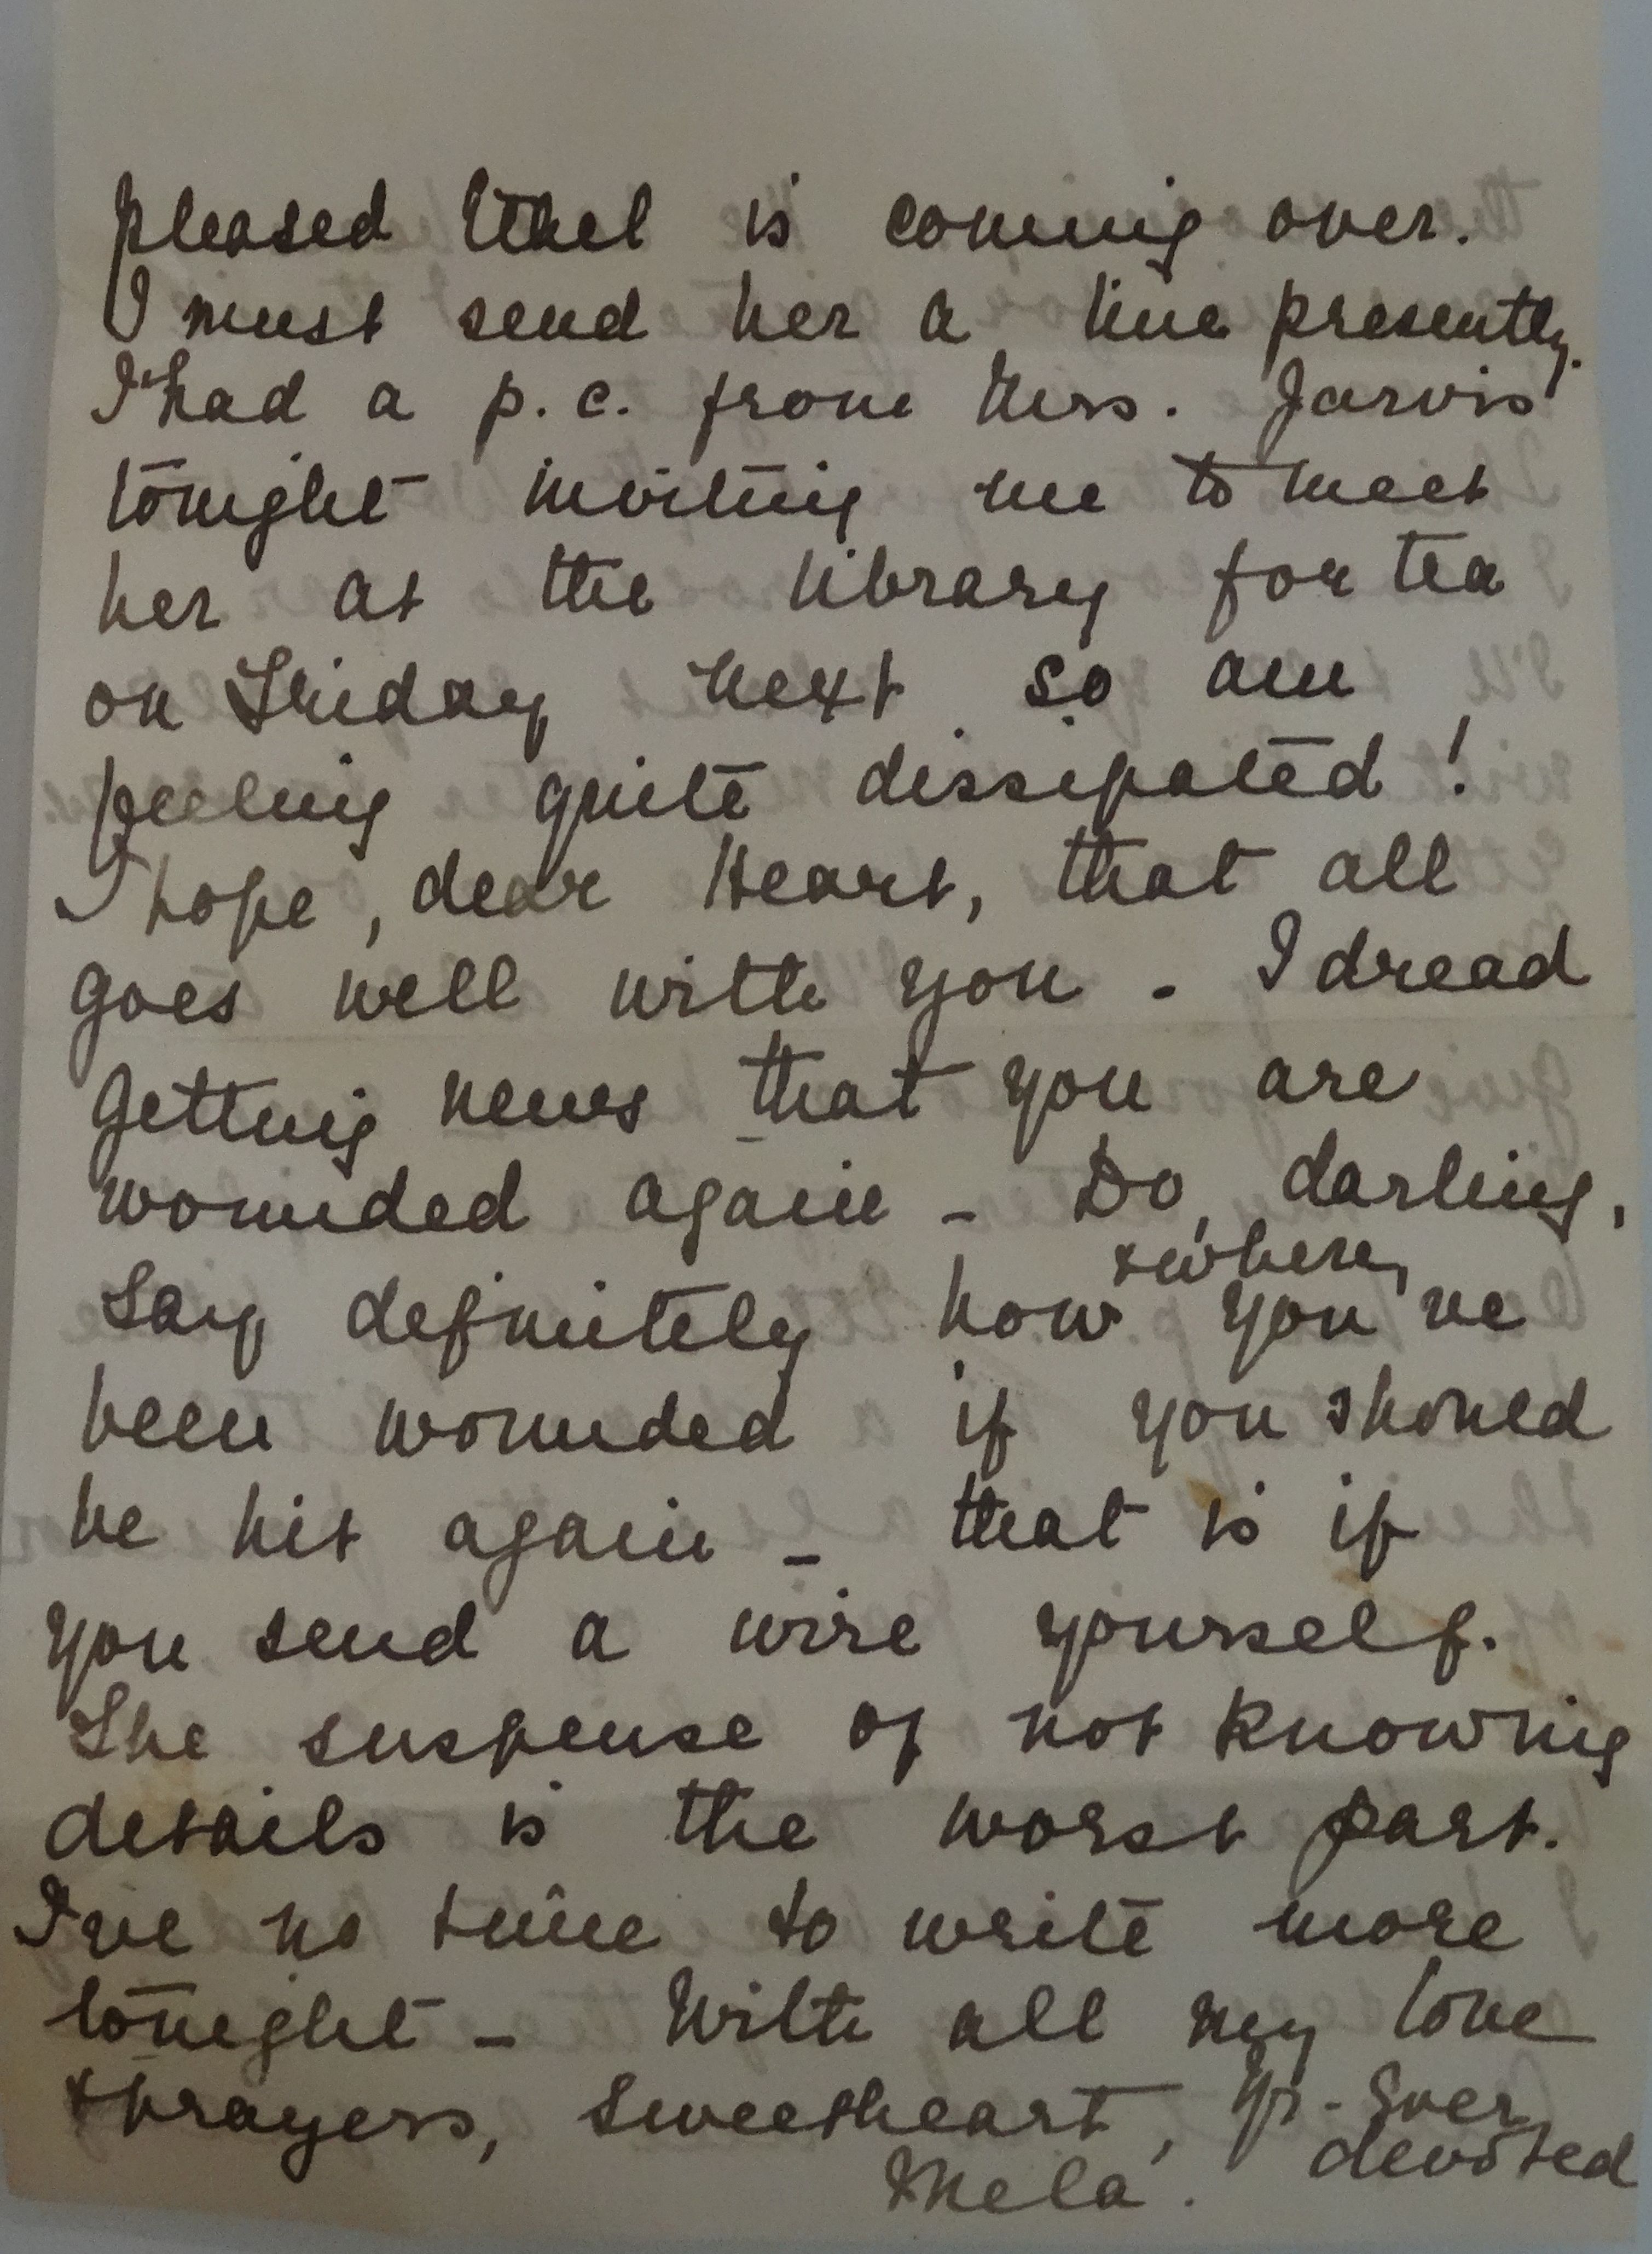 pleased Ethel is coming over.
I must send her a line presently.
I had a p.c. from Mrs. Jarvis
tonight inviting me to meet
her at the library for tea
on Friday next so am
feeling quite dissipated!
I hope, dear Heart, that all
goes well with you - I dread
getting news that you are
wounded again - Do, darling,
say definitely how & where, you've
been wounded if you should
be hit again - that is if
you send a wire yourself.
The suspense of not knowing
details is the worst part.
I've no time to write more
tonight - With all my love
& prayers, sweetheart, Yr. Ever
devoted
Mela.